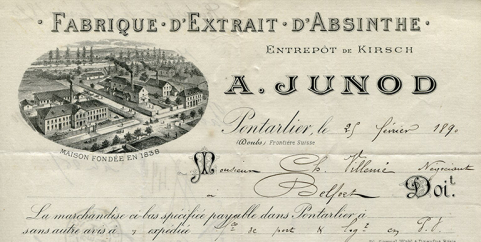 · FABRIQUE · D'EXTRAIT · D'ABSINTHE ·
ENTREPÔT DE KIRSCH
A. JUNOD
Pontarlier, le 25 février 189
(Doubs) Frontière Suisse
MAISON FONDÉE EN 1838
Monsieur Ch. Négociant
Belfort Doit
La marchandise ci-bas spécifiée payable dans Pontarlier, à
sans autre avis à expédiée de port & en P. V.